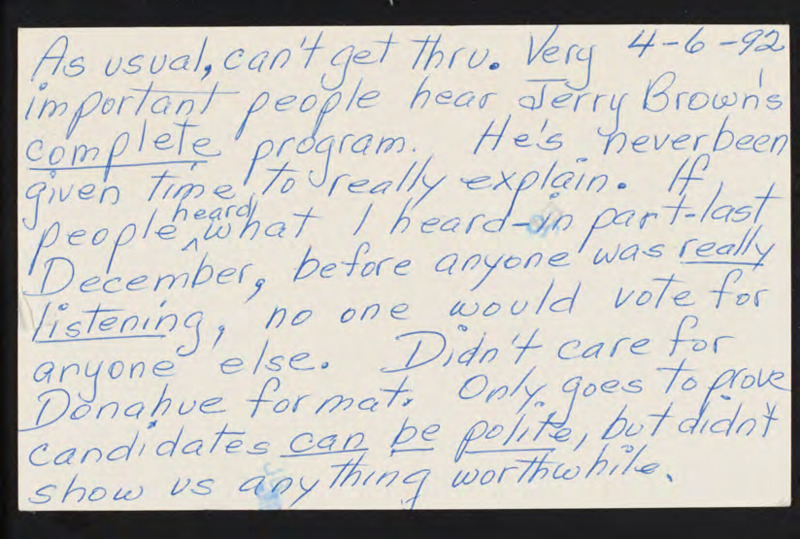 As usual, can't get thru. Very 4-6-92
important people hear Jerry Brown's
complete program. He's never been
given time to really explain. If
people heard what I heard-in part-last
December, before anyone was really
listening, no one would vote for
anyone else. Didn't care for
Donahue format. Only goes to prove
candidates can be polite, but didn't
show us anything worthwhile.